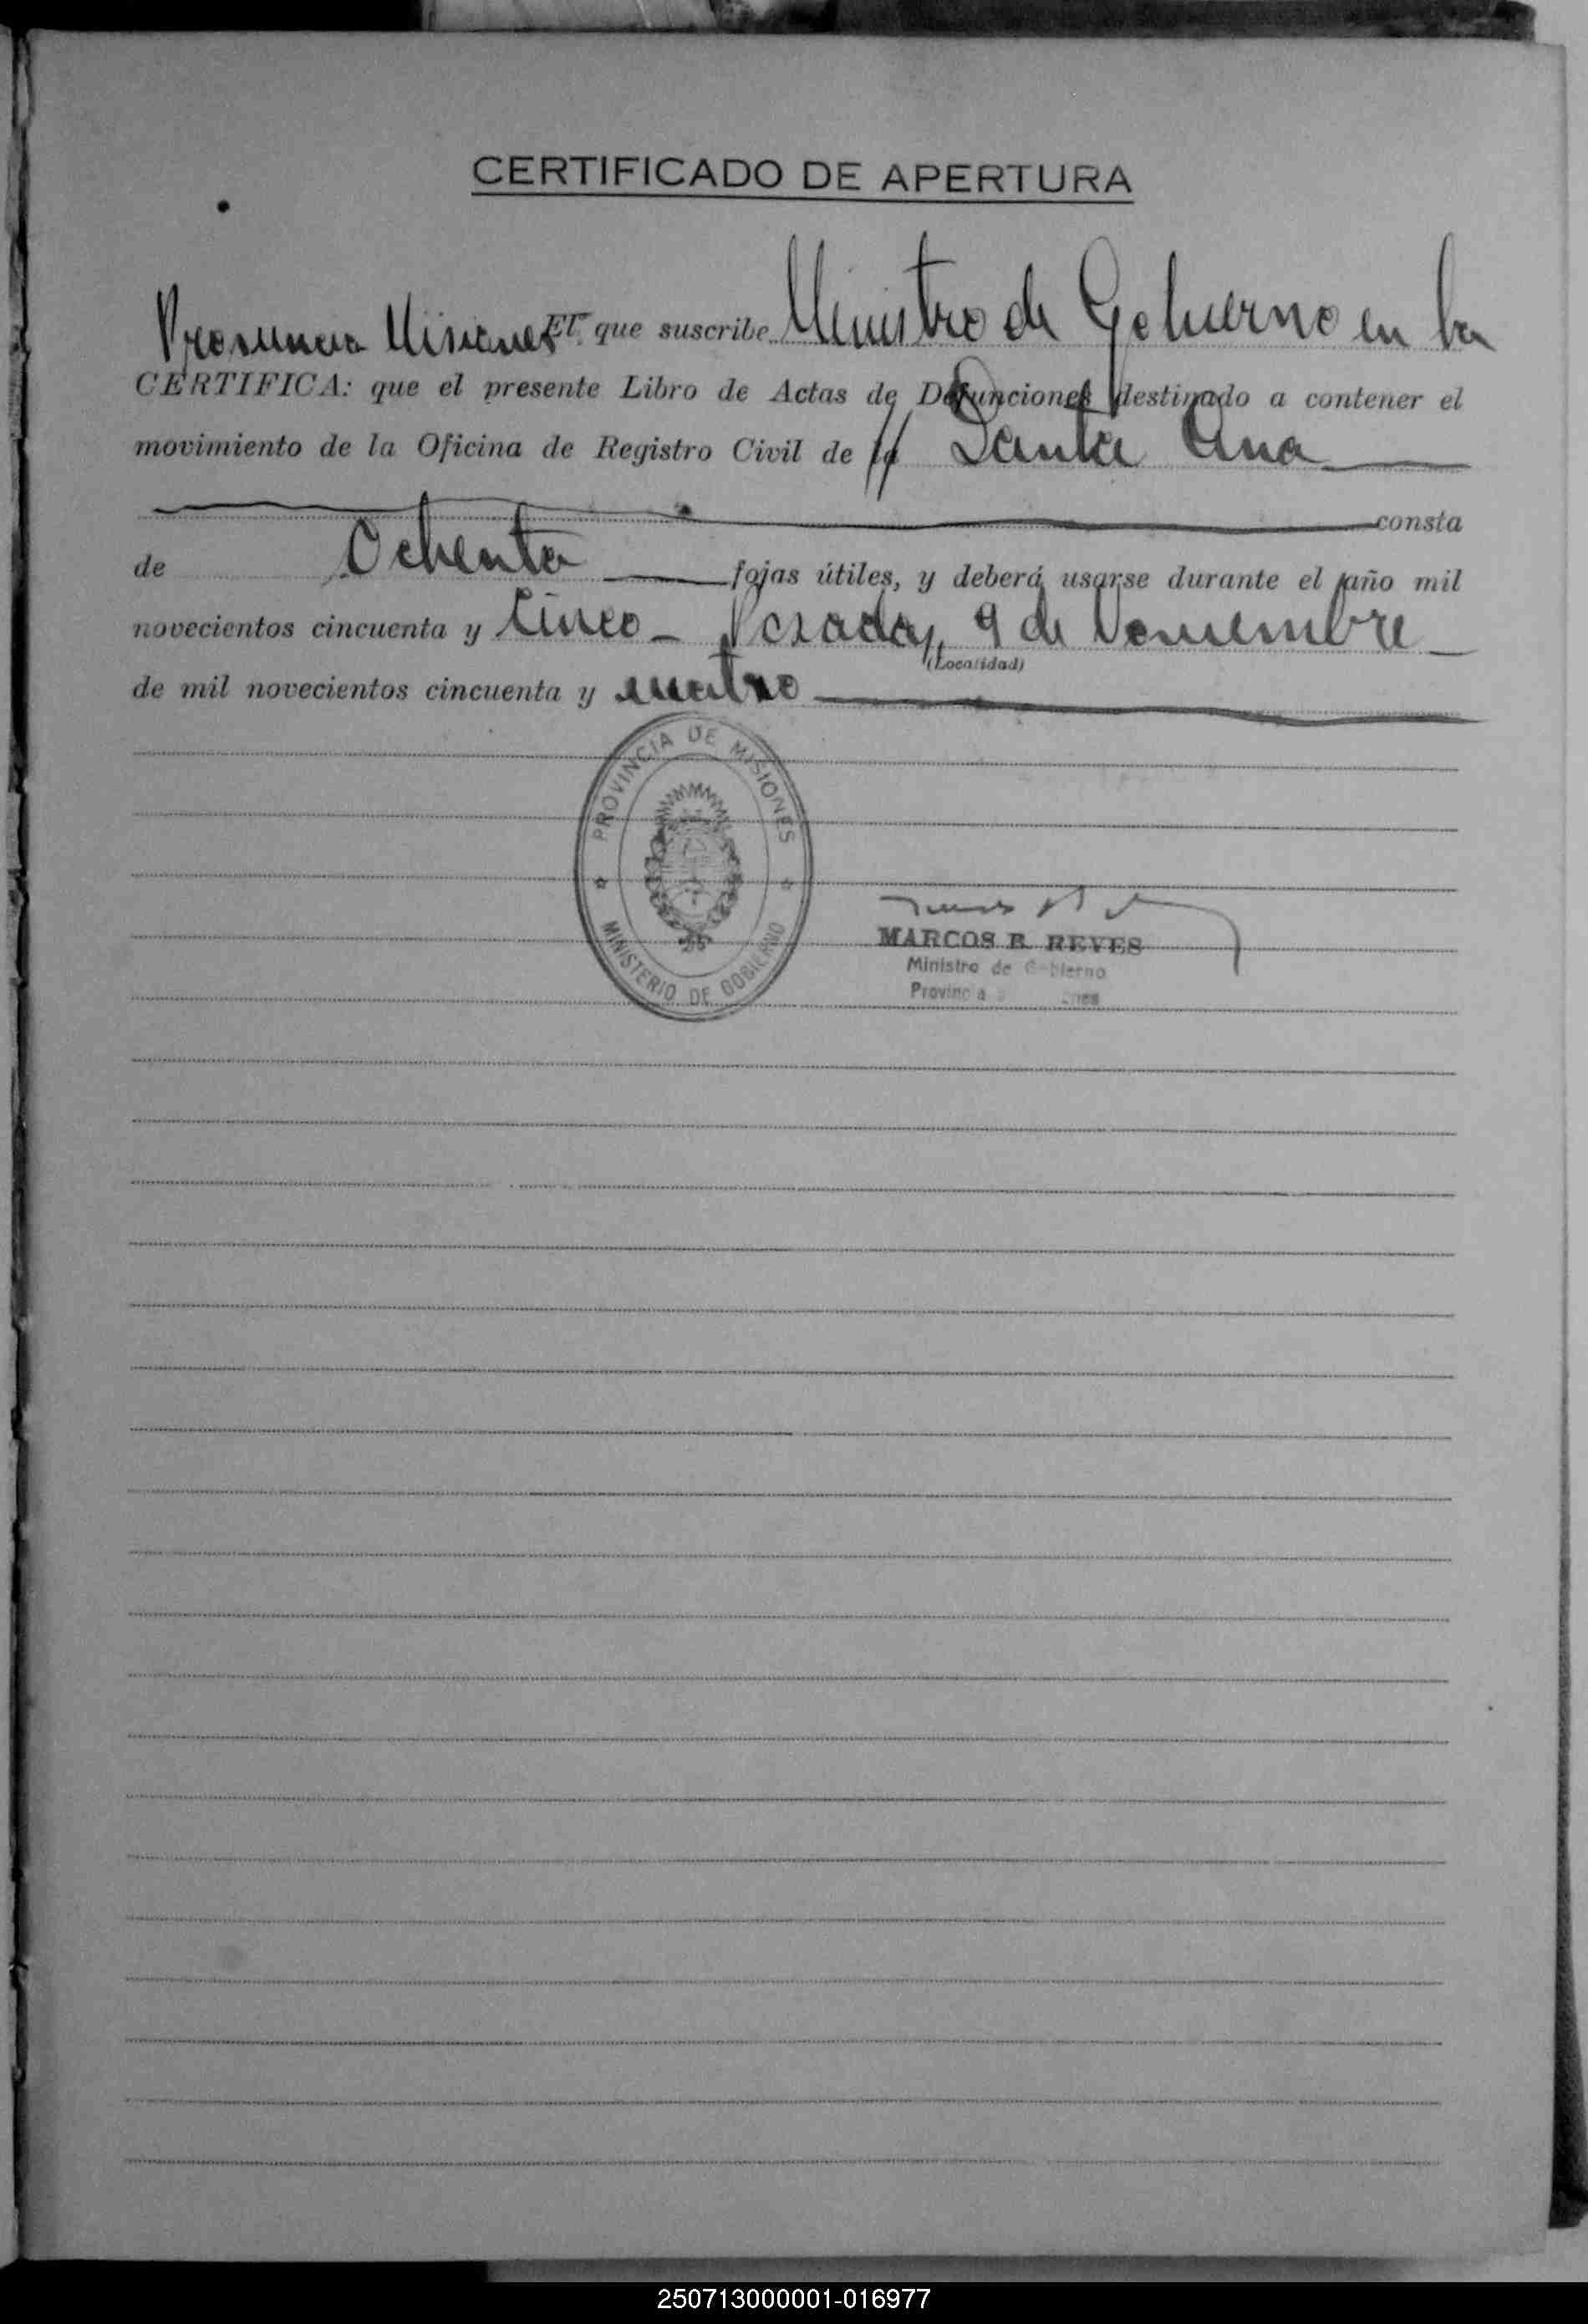 CERTIFICADO DE APERTURA
El que suscribe Ministro de Gobierno en la
Provincia Misiones
CERTIFICA: que el presente Libro de Actas de Defunciones destinado a contener el
movimiento de la Oficina de Registro Civil de la Santa Ana
consta
de Ochenta fojas útiles, y deberá usarse durante el año mil
novecientos cincuenta y Cinco - Posadas, 9 de Noviembre
(Localidad)
de mil novecientos cincuenta y cuatro
PROVINCIA DE MISIONES
MINISTERIO DE GOBIERNO
MARCOS B. REYES
Ministro de Gobierno
Provincia
250713000001-016977